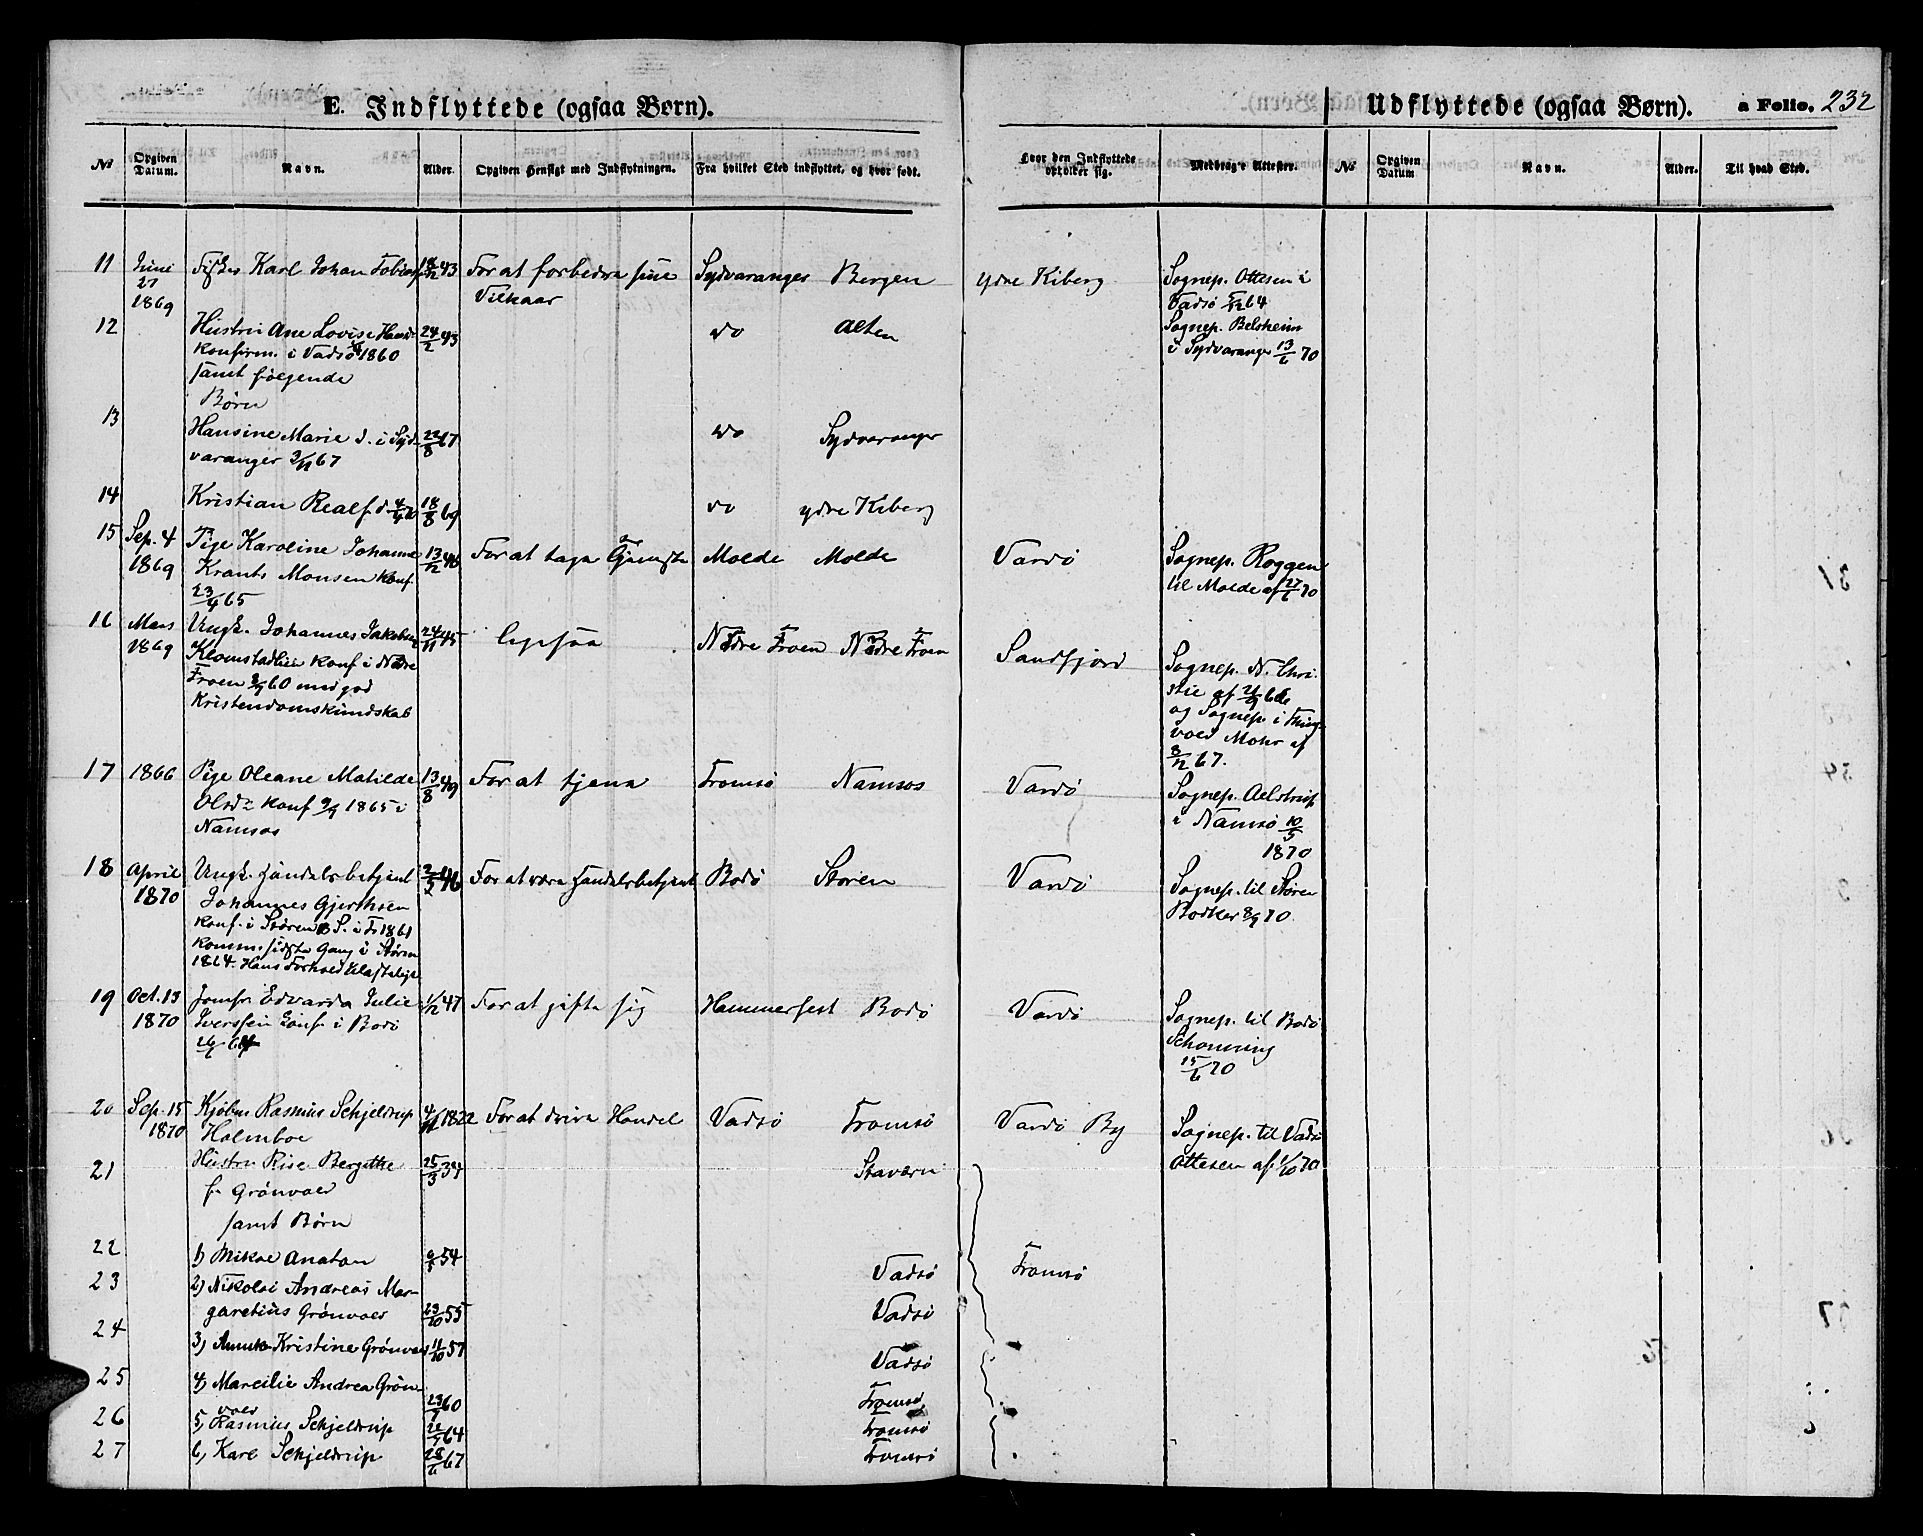 E. Indflyttede (ogsaa Børn).
Udflyttede (ogsaa Børn).
a Folio. 232
No
Opgiven Datum.
Navn.
Alder.
Opgiven Hensigt med Indflytningen.
Fra hvilket Sted indflyttet, og hvor født.
Hvor den Indflyttede opholder sig.
Medbragte Attester.
No
Opgiven Datum
Navn.
Alder.
Til hvad Sted.
11 Juni Karl Johan 18/12 43 For at forbedre sine Sydvaranger Bergen ydre Kiberg Sognep. Ottesen i
27 Vilkaar Vadsö 64
1869
12 Hustru Ane Lovise 24/2 43 do Alten Sognep. Belsheim
konfirm. i Vadsö 1860 i Sydvaranger 13/6 70
samt følgende
Børn
13 Hansine Marie d. i Syd- 22/8 67 do Sydvaranger
varanger 3/11 67
14 Kristian Realf d. 18/8 69 do ydre Kiberg
15 Sep. 4 Pige Karoline Johanne 13/12 46 For at tage Tjeneste Molde Molde Vardö Sognep. Roggen
1869 Krantz Monsen konf. til Molde af 27/6 70
23/4 65
16 Mars Ungk. Johannes 24/11 45 ligesaa Nedre Froen Nedre Froen Sandfjord Sognep. N. Chri-
1869 konf i Nedre stie af
Froen 60 med god og Sognep. i Ting-
Kristendomskundskab vold Mohr af
8/12 67.
17 1866 Pige Oleane Matilde 13/8 49 For at tjene Tromsö Namsos Vardö Sognep.
konf 1865 i i Namsö 10/5
Namsos 1870
18 April Ungk. Handelsbetjent 46 For at være Handelsbetjent Bodö Støren Vardö Sognep. til Støren
1870 Johannes 70
konf. i Støren 1861
komm. sidste Gang i Støren
1864. Hans Forhold
19 Oct. 13 Jomfr. Edvarda Julie 1/12 47 For at gifte sig Hammerfest Bodö Vardö Sognep. til Bodö
1870 Iverssen konf i Bodö
15/6 70
20 Sep. 15 Kjøbm Rasmus Schjeldrup 1822 For at drive Handel Vadsö Tromsö Vardö By Sognep. til Vadsö
1870 Holmboe Ottesen af 1/10 70
21 Hustru Bergitthe 25/3 34 Stavern
f. Grönvold
samt Börn
22 1) Mikal Anaton 54 Vadsö Tromsö
23 2) Nikolai Andreas Mar-
garetius Grönvold 23/10 55 Vadsö
24 3) Kristine Grönvold 11/10 57 Vadsö
25 4) Marcilie Andrea Grön-
vold 60 Tromsö
26 5) Rasmus Schjeldrup 64 Tromsö
27 6) Karl Schjeldrup 28/6 67 Tromsö